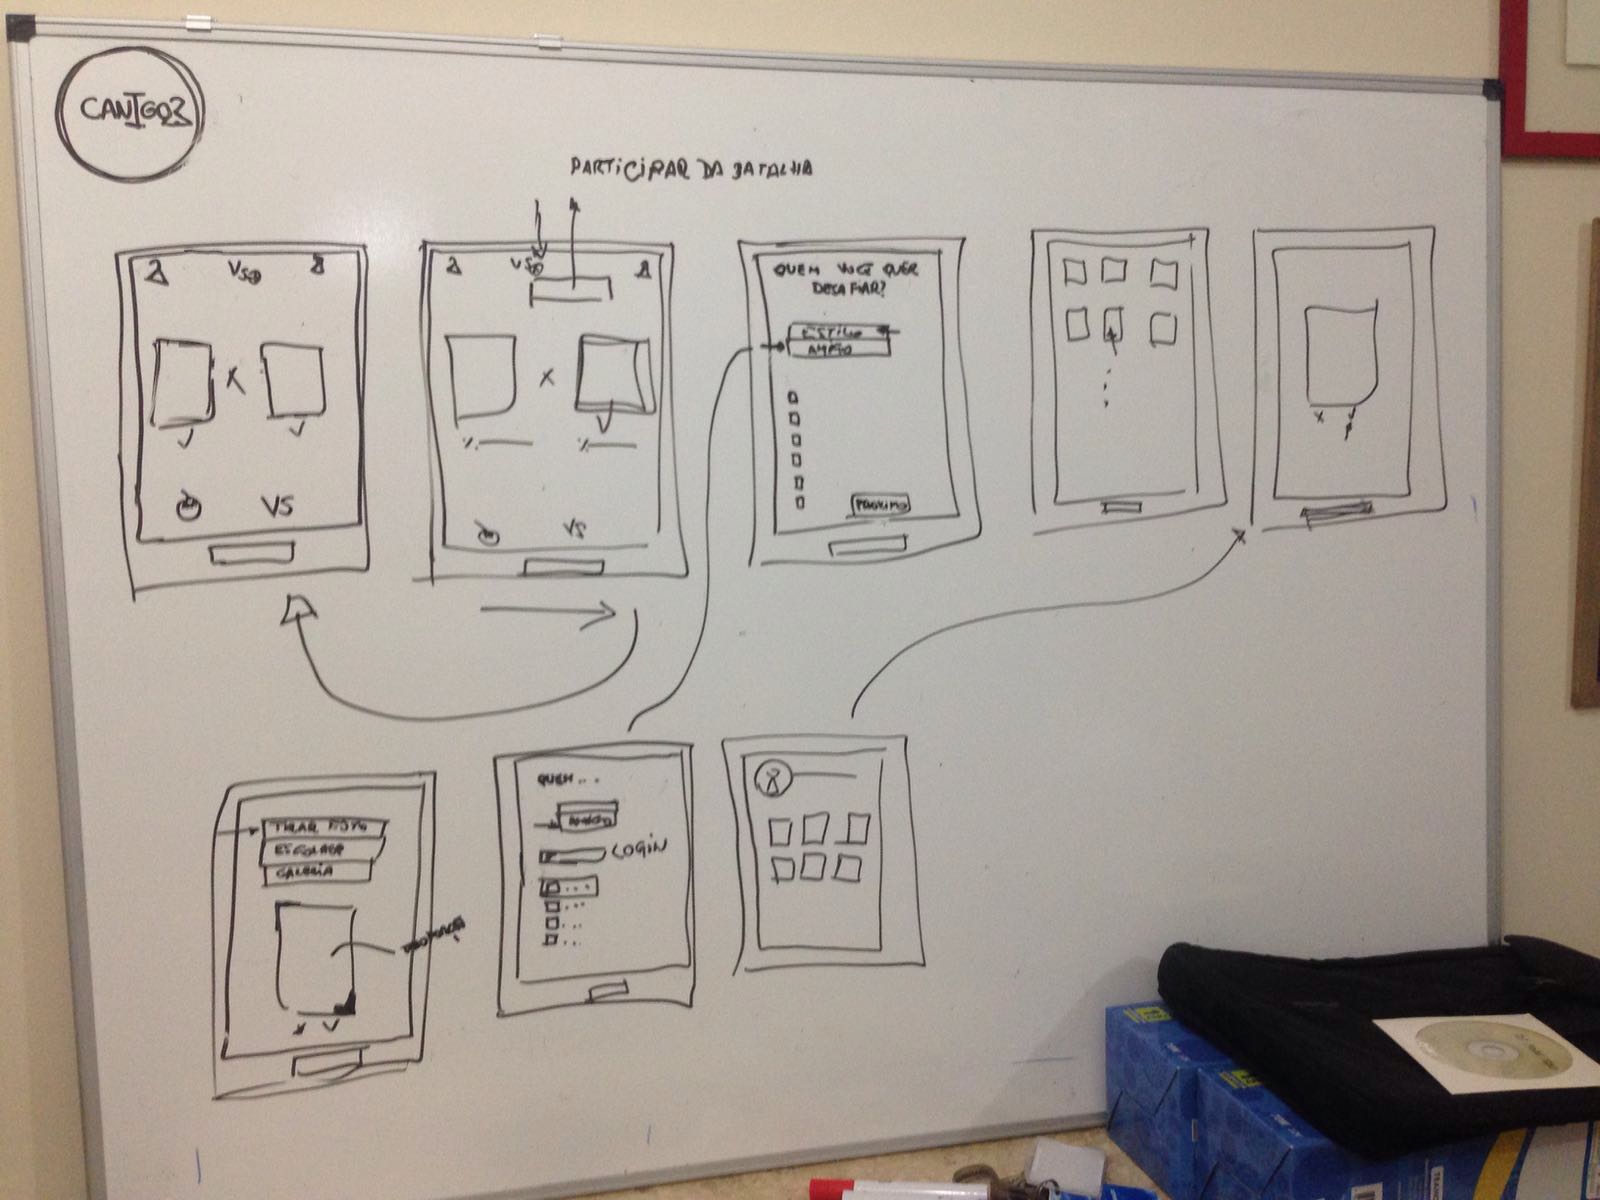 CANIGO?
PARTICIPAR DA BATALHA
VS
X
VS
VS
X
VS
QUEM VOCÊ QUER
DESAFIAR?
ESTILO
AMIGO
PRÓXIMO
TIRAR FOTO
ESCOLHER
GALERIA
QUEM...
AMIGO
LOGIN